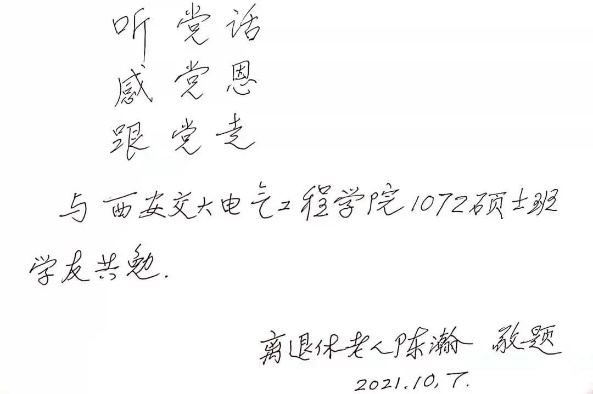 听党话
感党恩
跟党走
与西安交大电气工程学院1072硕士班
学友共勉.
离退休老人陈瀚 敬题
2021.10.7.